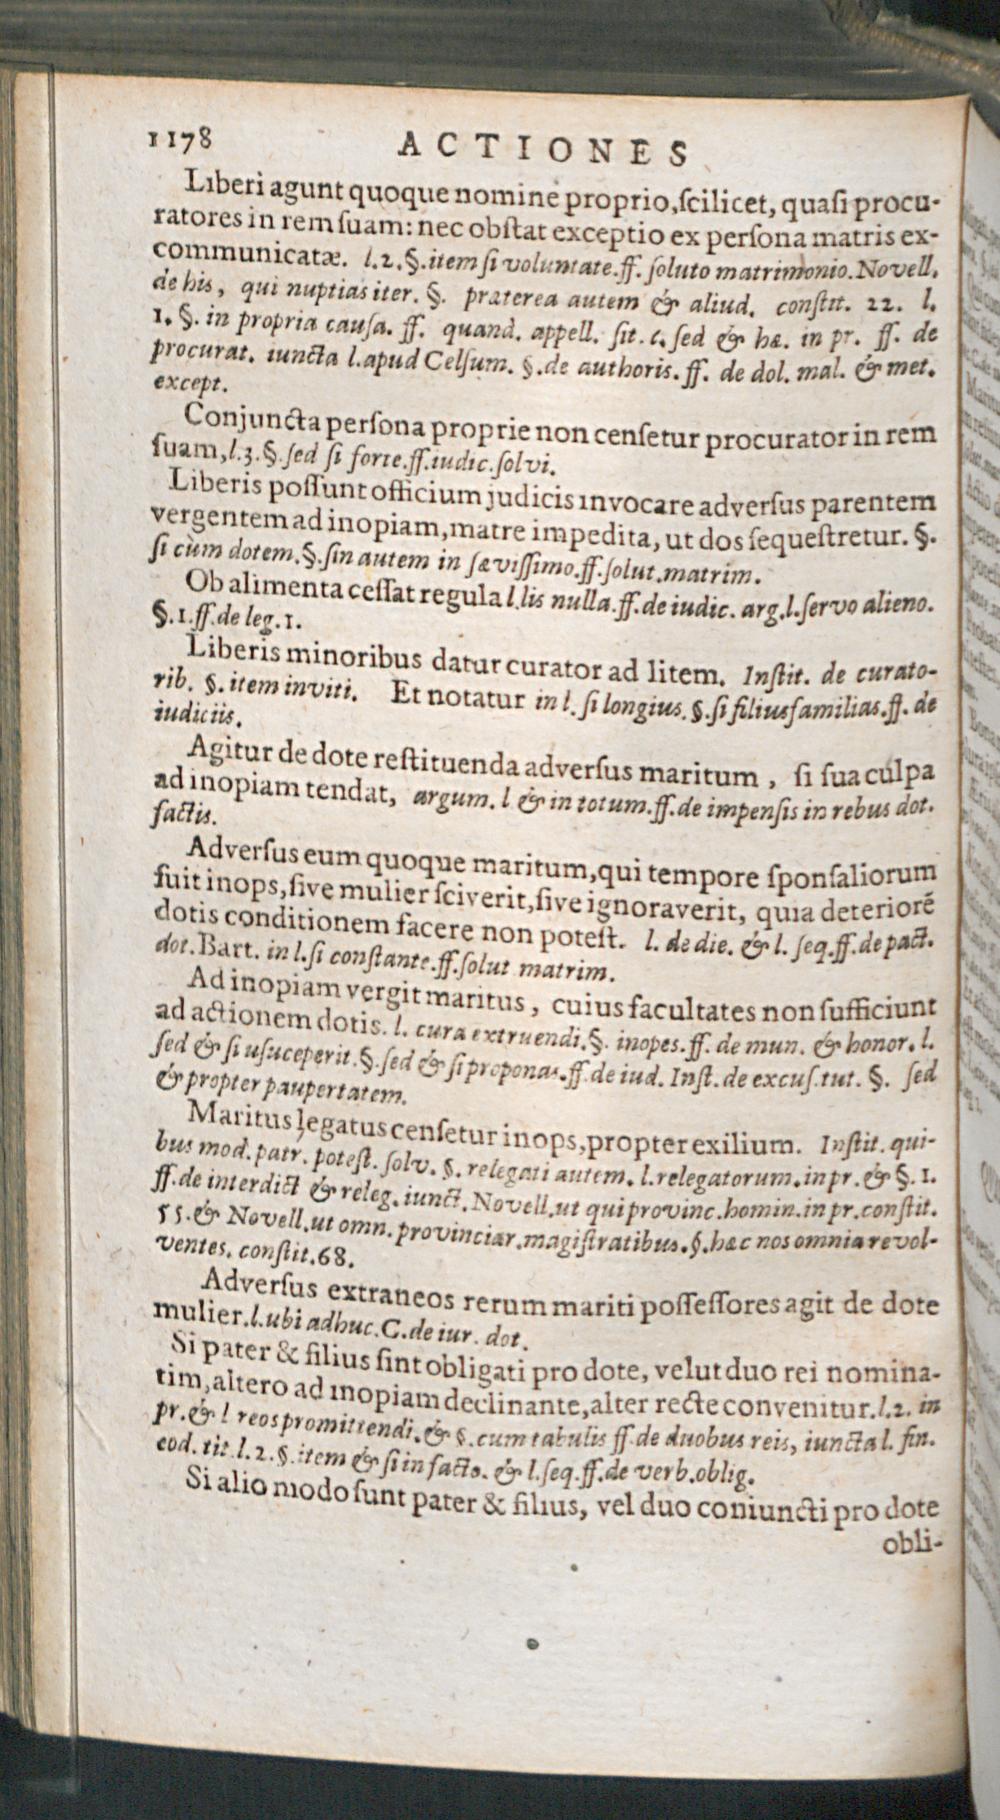 1178 ACTIONES
Liberi agunt quoque nomine proprio, ſcilicet, quaſi procu-
ratores in rem ſuam: nec obſtat exceptio ex perſona matris ex-
communicatæ. l. 2. §. item ſi voluntate. ff. ſoluto matrimonio. Novell.
de his, qui nuptias iter. §. præterea autem & aliud. conſtit. 22. l.
1. §. in propria cauſa. ff. quand. appell. ſit. c. ſed & hæ. in pr. ff. de
procurat. iuncta l. apud Celſum. §. de authoris. ff. de dol. mal. & met.
except.
Conjuncta perſona proprie non cenſetur procurator in rem
ſuam, l. 3. §. ſed ſi forte. ff. iudic. ſolvi.
Liberis poſſunt officium judicis invocare adverſus parentem
vergentem ad inopiam, matre impedita, ut dos ſequeſtretur. §.
ſi cùm dotem. §. ſin autem in ſæviſſimo. ff. ſolut. matrim.
Ob alimenta ceſſat regula l. lis nulla. ff. de iudic. arg. l. ſervo alieno.
§. 1. ff. de leg. 1.
Liberis minoribus datur curator ad litem. Inſtit. de curato-
rib. §. item inviti. Et notatur in l. ſi longius. §. ſi filiusfamilias. ff. de
iudiciis.
Agitur de dote reſtituenda adverſus maritum, ſi ſua culpa
ad inopiam tendat, argum. l & in totum. ff. de impenſis in rebus dot.
factis.
Adverſus eum quoque maritum, qui tempore ſponſaliorum
fuit inops, ſive mulier ſciverit, ſive ignoraverit, quia deteriorē
dotis conditionem facere non poteſt. l. de die. & l. ſeq. ff. de pact.
dot. Bart. in l. ſi conſtante. ff. ſolut matrim.
Ad inopiam vergit maritus, cuius facultates non ſufficiunt
ad actionem dotis. l. cura extruendi. §. inopes. ff. de mun. & honor. l.
ſed & ſi uſuceperit. §. ſed & ſi proponas. ff. de iud. Inſt. de excuſ. tut. §. ſed
& propter paupertatem.
Maritus legatus cenſetur inops, propter exilium. Inſtit. qui-
bus mod. patr. poteſt. ſolv. §. relegati autem. l. relegatorum. in pr. & §. 1.
ff. de interdict & releg. iunct. Novell. ut qui provinc. homin. in pr. conſtit.
55. & Novell. ut omn. provinciar. magiſtratibus. §. hæc nos omnia revol-
ventes. conſtit. 68.
Adverſus extraneos rerum mariti poſſeſſores agit de dote
mulier. l. ubi adhuc. C. de iur. dot.
Si pater & filius ſint obligati pro dote, velut duo rei nomina-
tim, altero ad inopiam declinante, alter recte convenitur. l. 2. in
pr. & l reos promittendi. & §. cum tabulis ff. de duobus reis, iuncta l. fin.
eod. tit. l. 2. §. item & ſi in facto. & l. ſeq. ff. de verb. oblig.
Si alio modo ſunt pater & filius, vel duo coniuncti pro dote
obli-